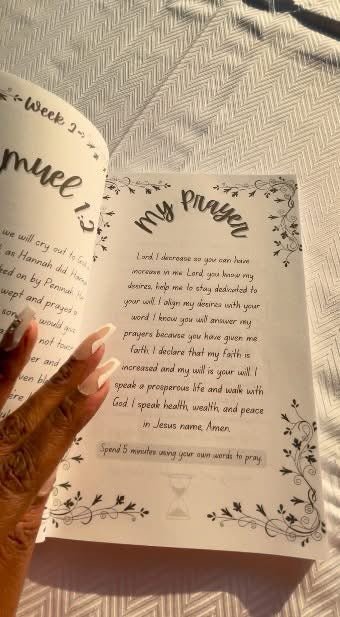 Week 2
muel 1:2
we will cry out to God
as Hannah did. Hannah
ked on by Peninah. He
wept and prayed
would give
not touch
er and
My Prayer
Lord, I decrease so you can have
increase in me. Lord, you know my
desires, help me to stay dedicated to
your will. I align my desires with your
word. I know you will answer my
prayers because you have given me
faith. I declare that my faith is
increased and my will is your will. I
speak a prosperous life and walk with
God. I speak health, wealth, and peace
in Jesus name, Amen.
Spend 5 minutes using your own words to pray.